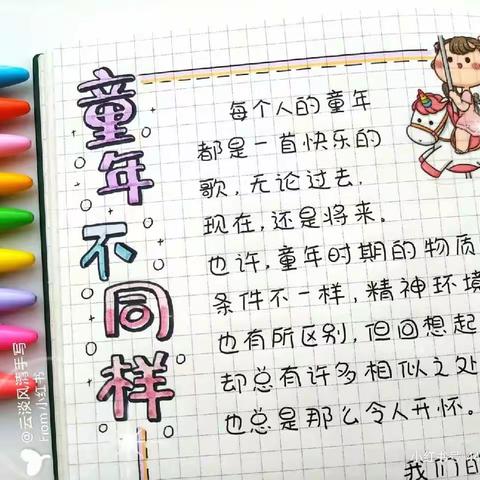 童年不同样
每个人的童年
都是一首快乐的
歌,无论过去,
现在,还是将来。
也许,童年时期的物质
条件不一样,精神环境
也有所区别,但回想起
却总有许多相似之处
也总是那么令人开怀。
我们的
@云淡风清手写
From 小红书